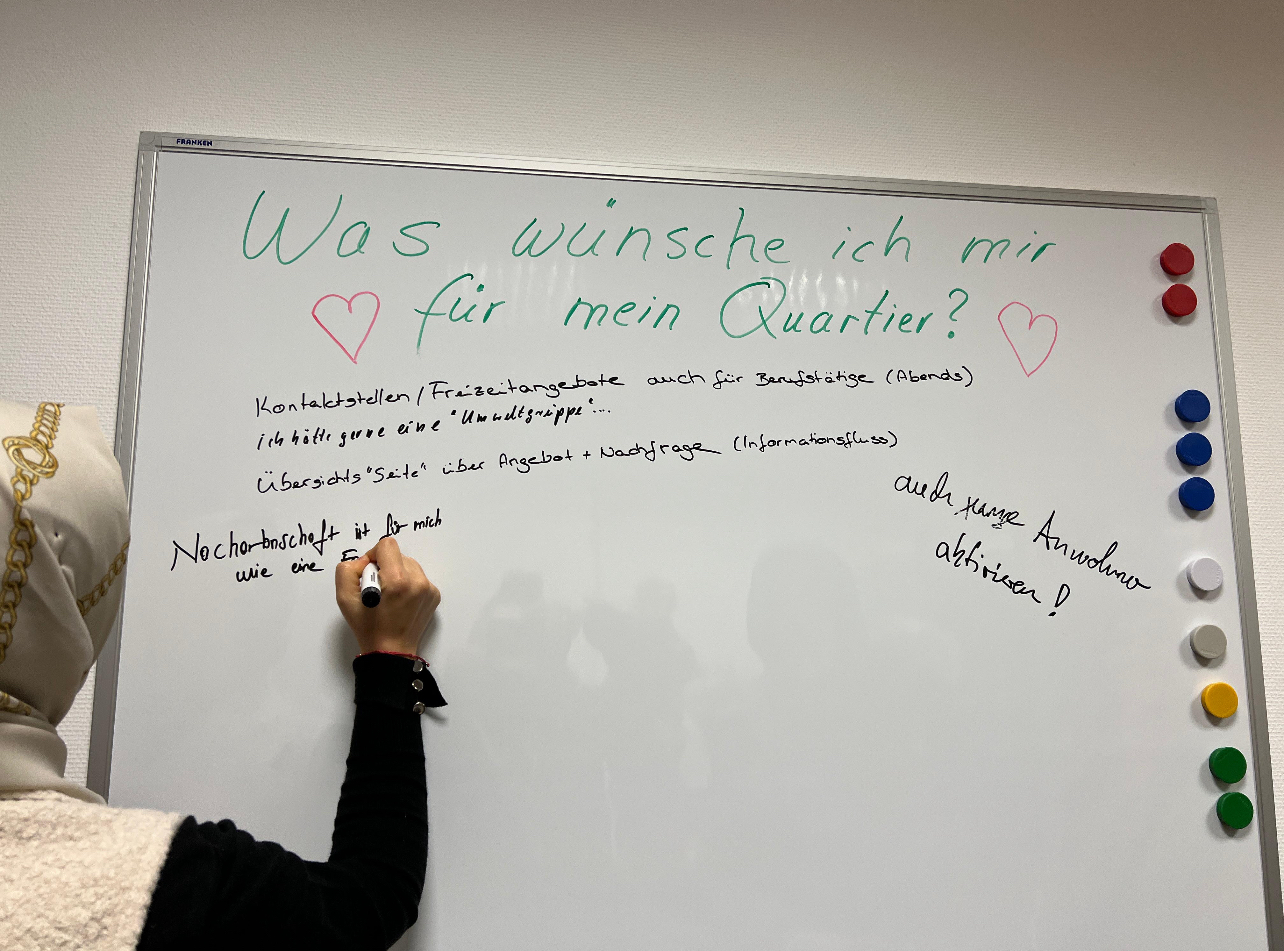 FRANKEN
Was wünsche ich mir
für mein Quartier?
Kontaktstellen / Freizeitangebote auch für Berufstätige (Abends)
ich hätte gerne eine "Umweltgruppe"...
Übersichts "Seite" über Angebot + Nachfrage (Informationsfluss)
auch Anwohner
aktivieren!
Nacharbnschaft ist für mich
wie eine